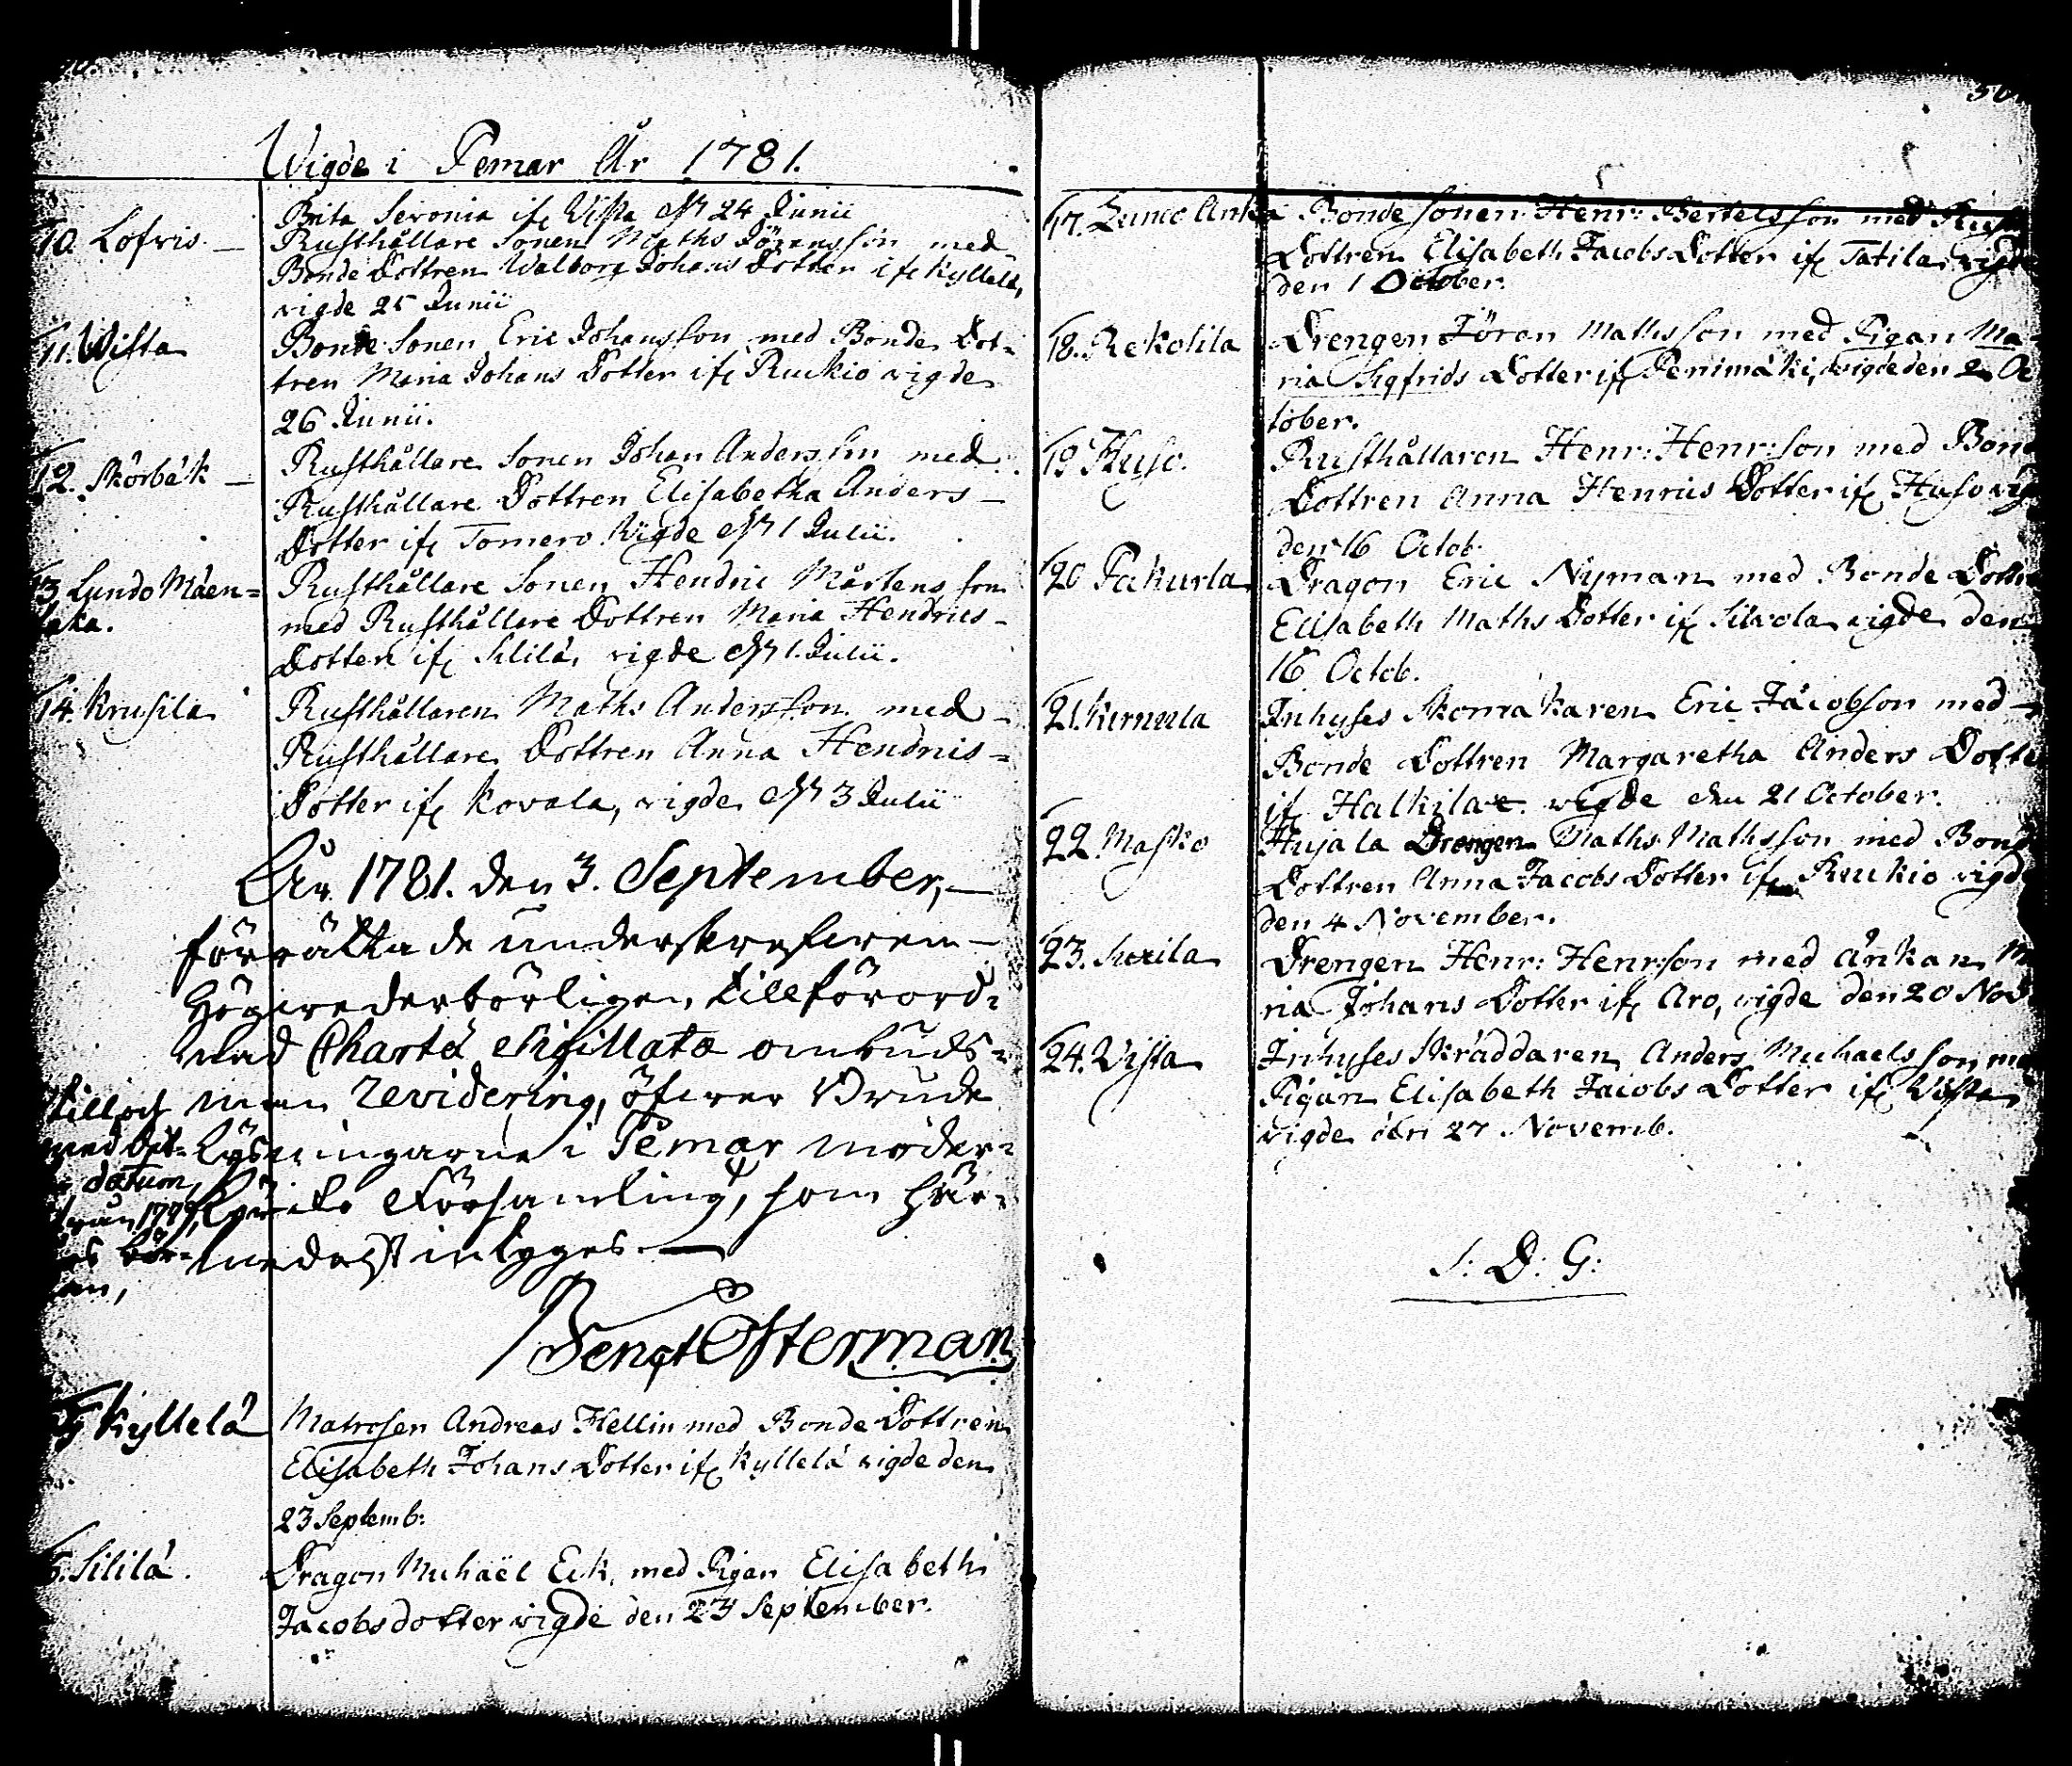 Wigde i Pemar År 1781.
Brita Seronia ifr Wista d. 24 Junii
10. Lofvis. — Rusthållare Sonen Maths Jöransson med
Bonde Dottren Walborg Johans Dotter ifr Kyllelä,
vigde 25 Junii
11. Wista Bonde Sonen Eric Johansson med Bonde Dot=
tren Maria Johans Dotter ifr Ruckio vigde
26 Junii.
12. Skörbäk — Rusthållare Sonen Johan Andersson med
Rusthållare Dottren Elisabetha Anders —
Dotter ifr Tomero Vigde d. 1 Julii.
13. Lundo Mäen= Rusthållare Sonen Hendric Mårtens son
med Rusthållare Dottren Maria Hendrics —
Dotter ifr Sililä, vigde d. 1. Julii.
14. Krusila Rusthållaren Maths Andersson med —
Rusthållare Dottren Anna Hendrics =
Dotter ifr Kovala, vigde d. 3 Julii
År 1781. den 3. September, —
förrättade underskrefven —
Högvederbörligen tillförord=
nad Charta Sigillata ombuds=
man revidering, öfver Brude
Lysningarne i Pemar moder=
Kyrko Församling, som här=
medelst intyges. —
till och
med det=
datum,
Bengt Osterman
Kyllelä Matrosen Andreas Hellin med Bonde Dottren
Elisabeth Johans Dotter ifr Kyllelä vigde den
23 Septemb:
6. Sililä. Dragon Michaël Eek, med Pigan Elisabeth
Jacobsdotter vigde den 23 September.
17. Lundo Anka Bonde sonen Henr: Bertelsson med Rust
Dottren Elisabeth Jacobs Dotter ifr Tatila vigde
den 1 October.
18. Rekolila Drengen Jöran Mathsson med Pigan Ma=
ria Sigfrids Dotter ifr Penimäki, vigde den 2 Oc
tober.
19 Huso. Rusthållaren Henr: Henr:son med Bond
Dottren Anna Henrics Dotter ifr Huso vig
den 16 Octob.
20 Pakurla Dragon Eric Nyman med Bonde Dottr
Elisabeth Maths Dotter ifr Silvola vigde den
16 Octob.
21. Kirmula Inhyses Skomakaren Eric Jacobson med —
Bonde Dottren Margaretha Anders Dotte
ifr Halkila vigde den 21 October.
22. Masko Hujala Drengen Maths Mathsson med Bond
Dottren Anna Jacobs Dotter ifr Ruckio vigde
den 4 November.
23. Suxila Drengen Henr: Henr:son med änkan M
ria Johans Dotter ifr Aro, vigde den 20 Nov.
24. Vista Inhyses Skräddaren Anders Michaelsson me
Pigan Elisabeth Jacobs Dotter ifr Wista
vigde den 27 Novemb.
S: D: G: